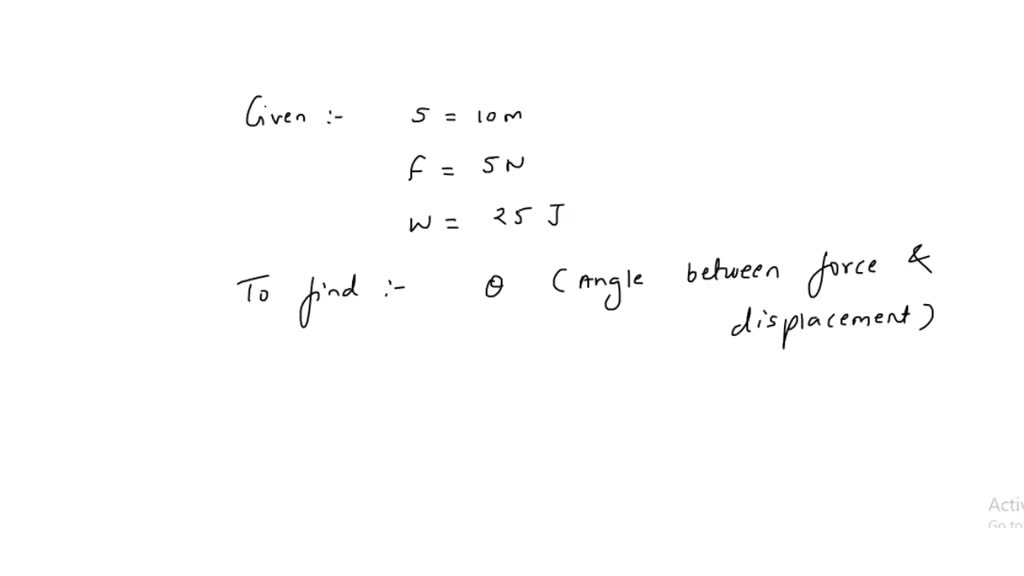 Given :- S = 10 m
F = 5 N
W = 25 J
To find :- θ (Angle between force &
displacement)
Activ
Go to